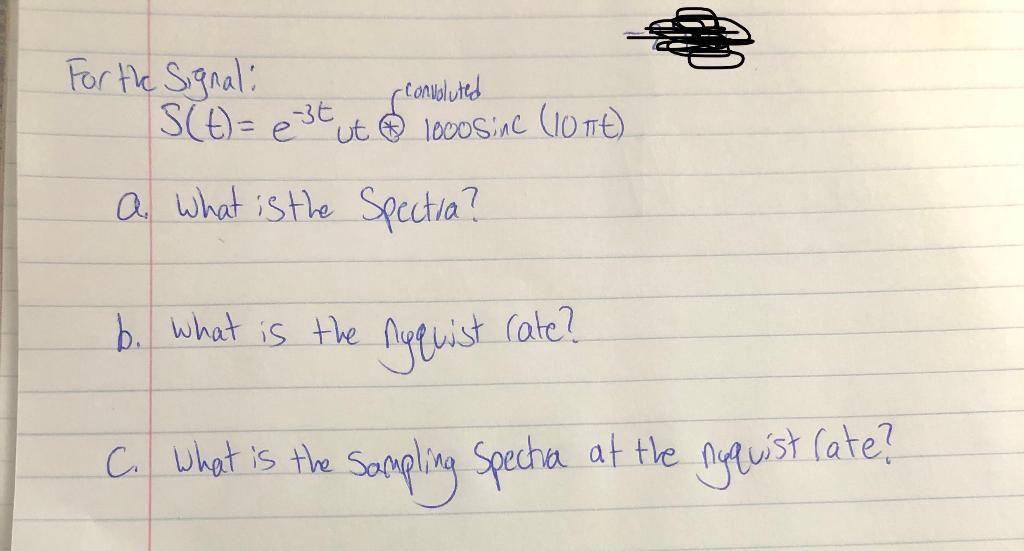 For the Signal:
convoluted
S(t) = e^-3t ut ⊛ 1000sinc (10πt)
a. What is the Spectra?
b. What is the nyquist rate?
C. What is the Sampling Spectra at the nyquist rate?